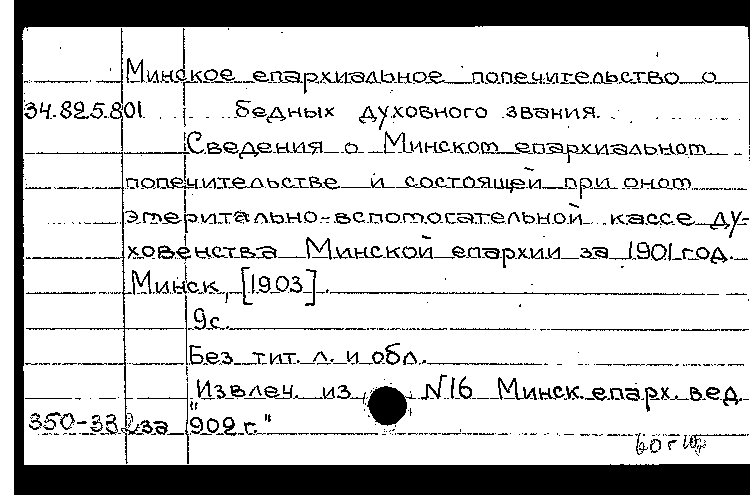 Минское епархиальное попечительство о
34.825.801 бедных духовного звания.
Сведения о Минском епархиальном
попечительстве и состоящей при оном
эмеритально-вспомогательной кассе ду-
ховенства Минской епархии за 1901 год.
Минск, [1903].
9с.
Без тит. л. и обл.
"Извлеч. из N16 Минск. епарх. вед.
350-332 за 902 г."
60г